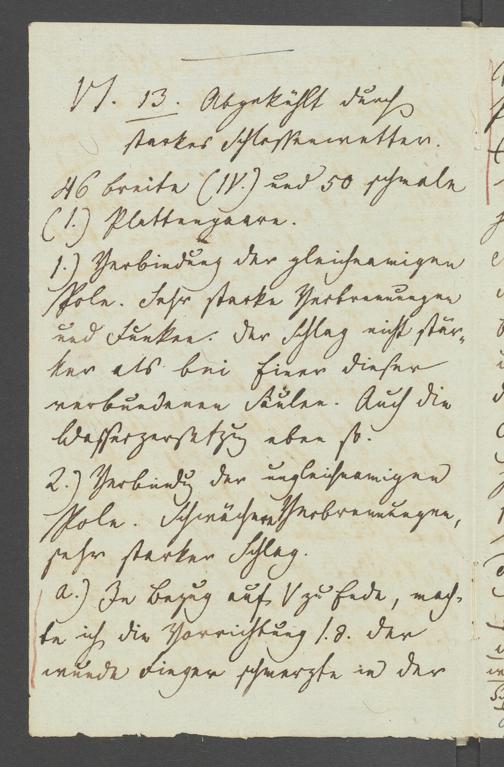 VI. 13. Abgekühlt durch
starkes Schlossenwetter.
46 breite (IV.) und 50 schmale
(I.) Plattenpaare.
1.) Verbindung der gleichnamigen
Pole. Sehr starke Verbrennungen
und Funken. Der Schlag nicht stär-
ker als bei Einer dieser
verbundenen Säulen. Auch die
Wasserzersetzung eben so.
2.) Verbindg der ungleichnamigen
Pole. Schwächere Verbrennungen,
sehr starker Schlag.
a.) In Bezug auf V zu Ende, mach-
te ich die Vorrichtung 1.8. der
wunde Finger schmerzte in der